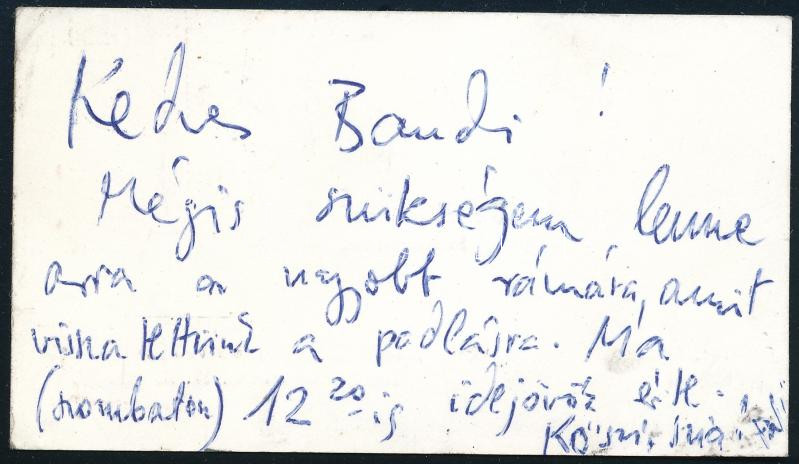 Kedves Bandi!
Mégis szükségem lenne
arra a nagyobb rámára, amit
vissza tettünk a padlásra. Ma
(szombaton) 12 20-ig idejövök érte.
Kösz.